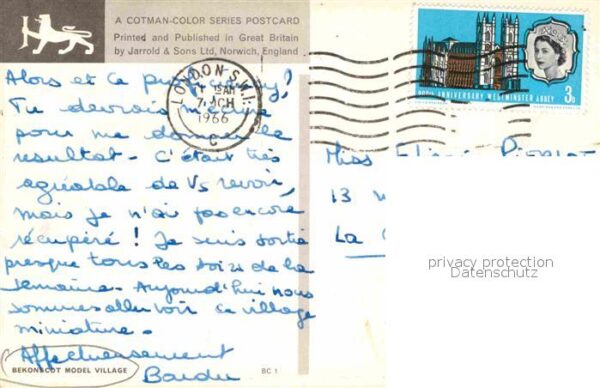 A COTMAN-COLOR SERIES POSTCARD
Printed and Published in Great Britain
by Jarrold & Sons Ltd, Norwich, England
LONDON S.W.1
7 MCH
1966
C
900TH ANNIVERSARY WESTMINSTER ABBEY
3D
Alors et ce
Tu devrais
pour me donner le
résultat. C'était très
agréable de Vs revoir,
mais je n'ai pas encore
récupéré ! Je suis sortie
presque tous les soirs de la
semaine. Aujourd'hui nous
sommes allés voir ce village
miniature.
Affectueusement
BEKONSCOT MODEL VILLAGE
BC 1
Miss
13
La
privacy protection
Datenschutz